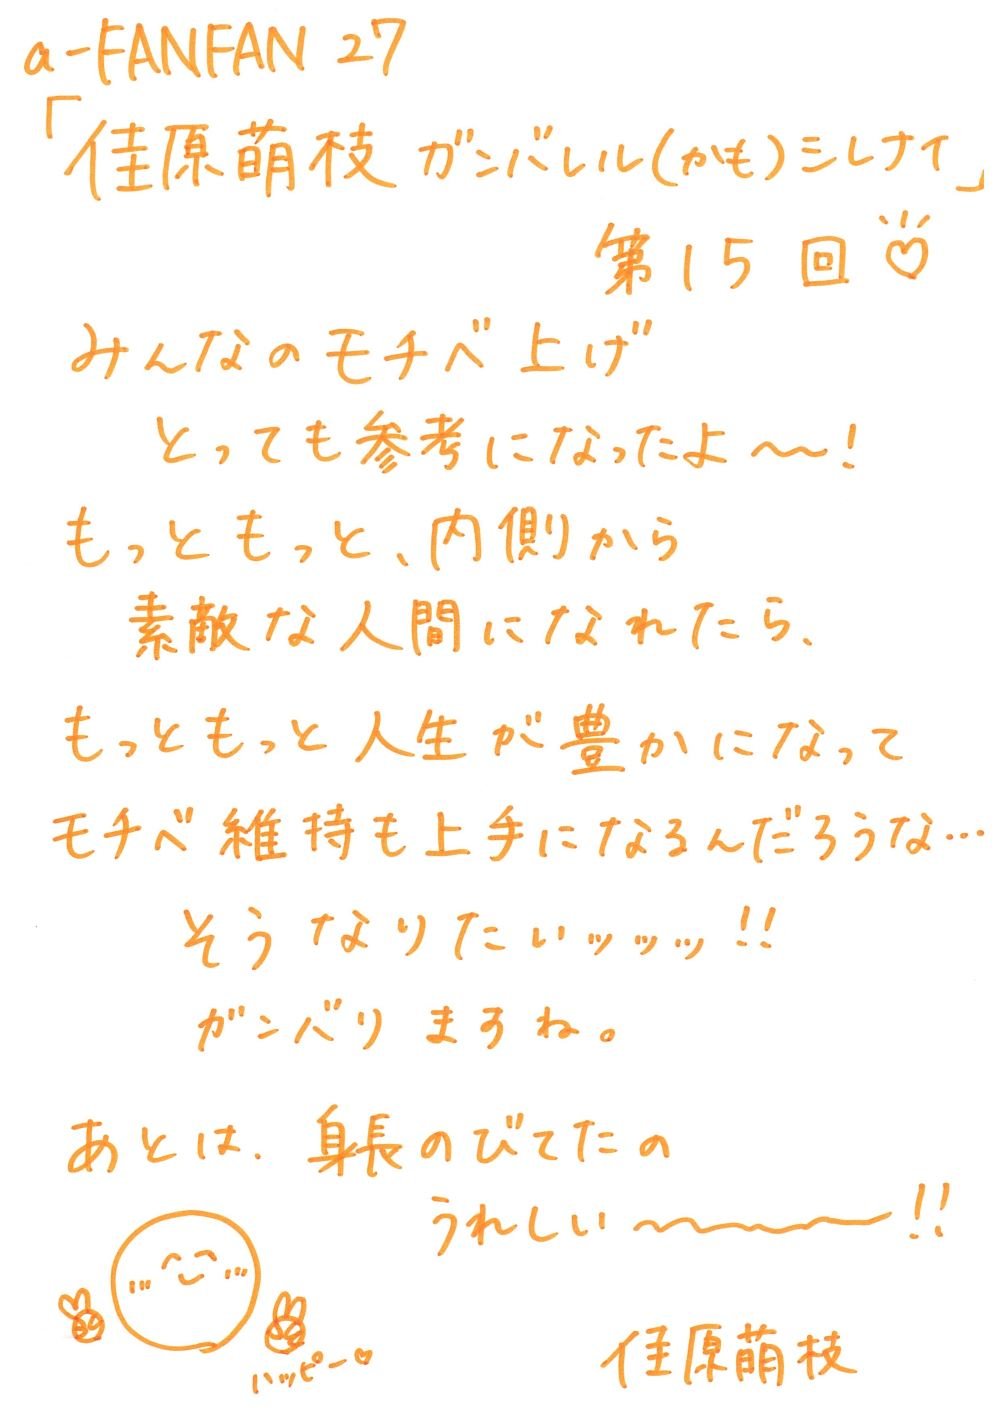 a-FANFAN 27
「佳原萌枝 ガンバレル(かも)シレナイ」
第15回♡
みんなのモチベ上げ
とっても参考になったよ〜!
もっともっと、内側から
素敵な人間になれたら、
もっともっと人生が豊かになって
モチベ維持も上手になるんだろうな…
そうなりたいッッッ!!
ガンバりますね。
あとは、身長のびてたの
うれしい〜〜〜!!
ハッピー♡
佳原萌枝